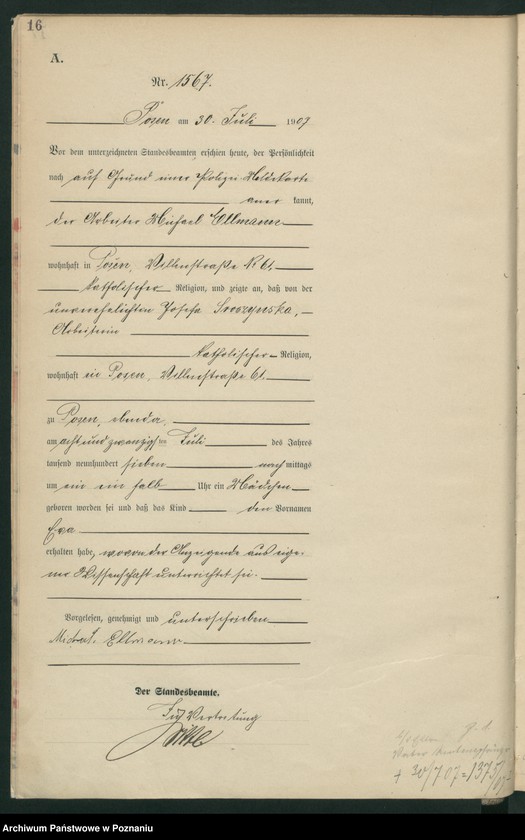 16
A.
Nr. 1567.
Posen am 30. Juli 1907
Vor dem unterzeichneten Standesbeamten erschien heute, der Persönlichkeit
nach auf Grund einer Polizei-Meldekarte
aner kannt,
der Arbeiter Michael Ellmann
wohnhaft in Posen,
katholischer Religion, und zeigte an, daß von der
unverehelichten Josefa
Arbeiterin
katholischer Religion,
wohnhaft in Posen,
zu Posen, ebenda,
am acht und zwanzigsten Juli des Jahres
tausend neunhundert sieben nach mittags
um ein ein halb Uhr ein Mädchen
geboren worden sei und daß das Kind den Vornamen
Eva
erhalten habe, wovon der Anzeigende aus eige-
ner Wissenschaft unterrichtet sei.
Vorgelesen, genehmigt und unterschrieben
Michael Ellmann
Der Standesbeamte.
In Vertretung
+ 30/7 07 = 1375/07
Archiwum Państwowe w Poznaniu